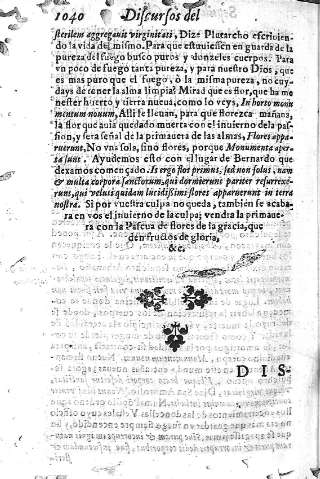 1040 Discursos del
sterilem aggreganit virginitati, Dize Plutarcho escriuien-
do la vida del mismo. Para que estuuiessen en guarda de la
pureza del fuego busco puros y donzeles cuerpos. Para
vn poco de fuego tanta pureza, y para nuestro Dios, que
es mas puro que el fuego, ò la misma pureza, no cuy-
days de tener la alma limpia? Mirad que es flor, que ha me
nester huerto y tierra nueua, como lo veys, In horto monu
mentum nouum, Alli le lleuan, para que florezca mañana,
la flor que aùn quedado muerta con el inuierno de la pas-
sion, y sera señal de la primauera de las almas, Flores appa-
ruerunt. No vna sola, sino flores, porque Monumenta aper-
ta sunt. Ayudemos esto con el lugar de Bernardo que
dexamos començado. Is ergo flos primus, sed non solus, nam
& multa corpora sanctorum, qui dormierunt pariter resurrexe-
runt, qui veluti quidam lucidissimi flores apparuerunt in terra
nostra. Si por vuestra culpa no queda, tambien se acaba-
ra en vos el inuierno de la culpa; vendra la primaue-
ra con la Pascua de flores de la gracia, que
den fructos de gloria,
&c.
DIS-